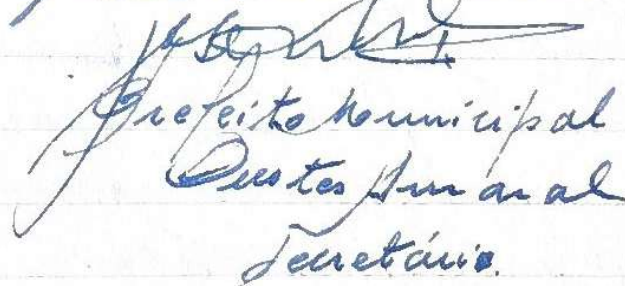 Prefeito Municipal
Amaral
Secretário.